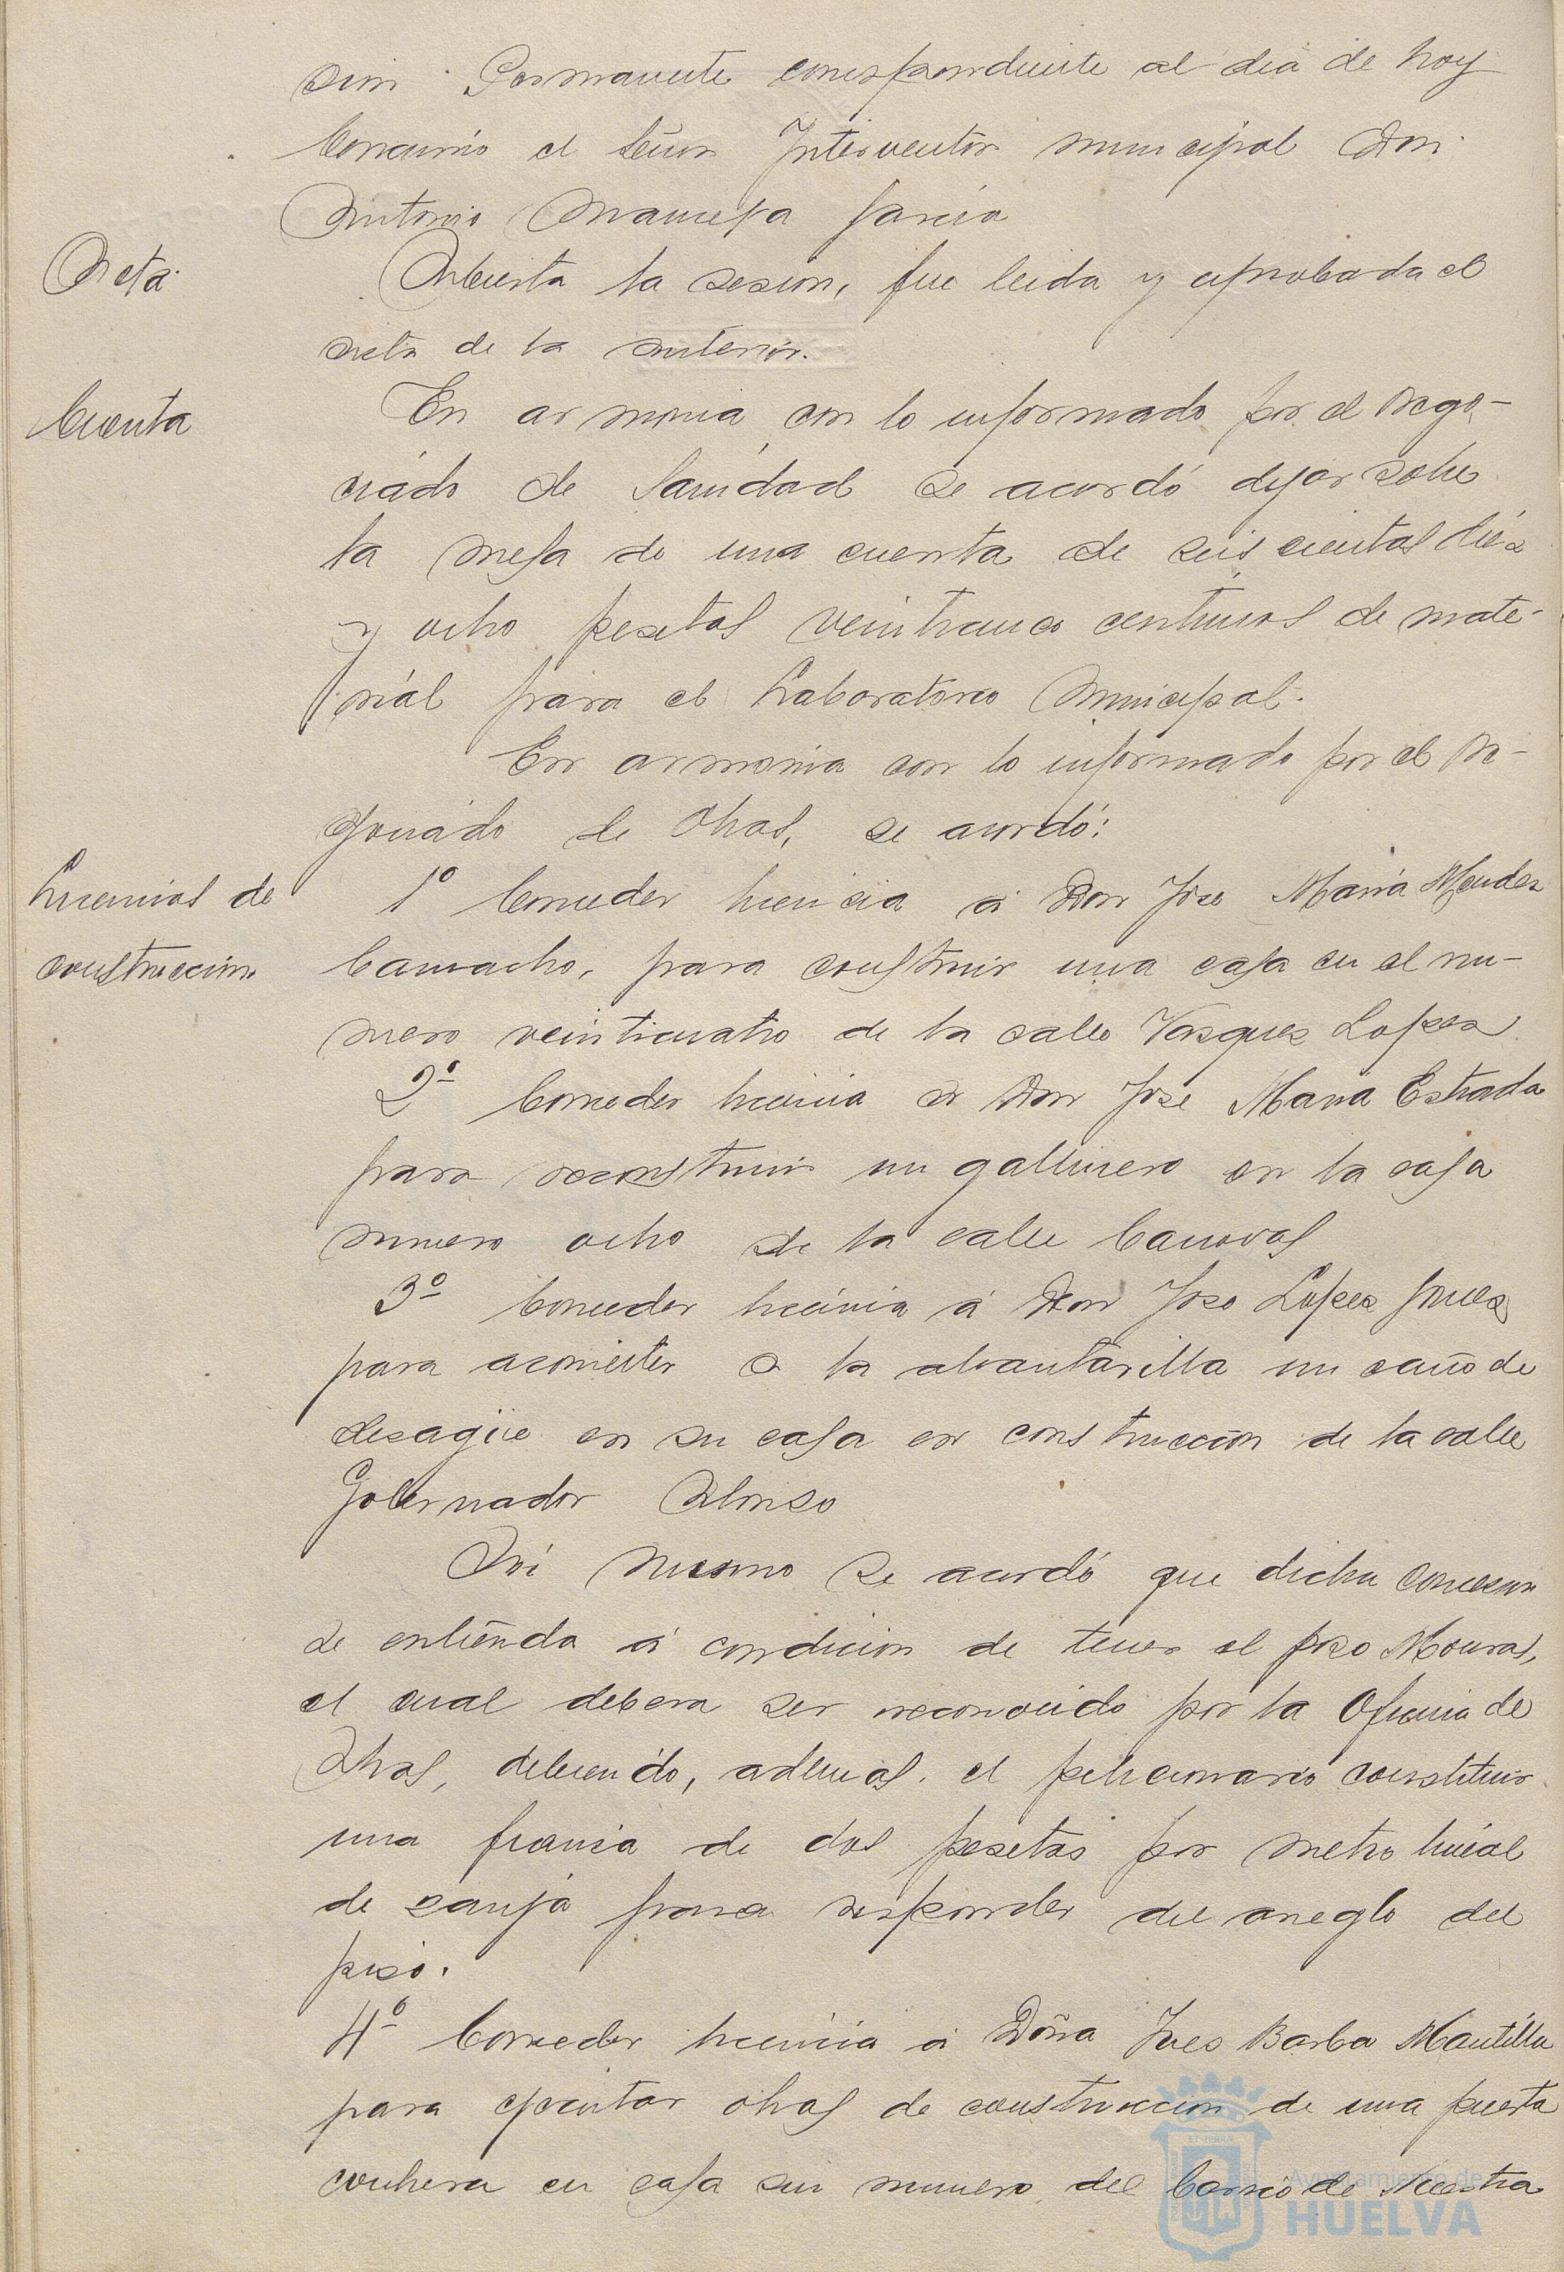 sion Permanente correspondiente al dia de hoy
Concurrió el Señor Interventor municipal Don
Antonio García
Acta. Abierta la sesion, fue leida y aprobada el
acta de la anterior.
Cuenta En armonia con lo informado por el Nego-
ciado de Sanidad se acordó dejar sobre
la mesa de una cuenta de seis cientas diez
y ocho pesetas veinticinco centimos de mate-
rial para el Laboratorio Municipal.
En armonia con lo informado por el Ne-
gociado de Obras, se acordó:
Licencias de 1º Conceder licencia á Don Jose Maria Mendez
construccion Camacho, para construir una casa en el nu-
mero veinticuatro de la calle Vasquez Lopez
2º Conceder licencia á Don Jose Maria Estrada
para reconstruir un gallinero en la casa
numero ocho de la calle Canovas
3º Conceder licencia á Don Jose Lopez
para acometer a la alcantarilla un caño de
desagüe en su casa en construccion de la calle
Gobernador Alonso
Asi mismo se acordó que dicha concesion
se entienda á condicion de tener el pozo Mouras,
el cual debera ser reconocido por la Oficina de
Obras, debiendo, ademas, el peticionario constituir
una fianza de dos pesetas por metro lineal
de zanja para responder del arreglo del
piso.
4º Conceder licencia á Doña Ines Barba Mantilla
para ejecutar obras de construccion de una puerta
cochera en casa sin numero del barrio de Nuestra
Ayuntamiento de
HUELVA